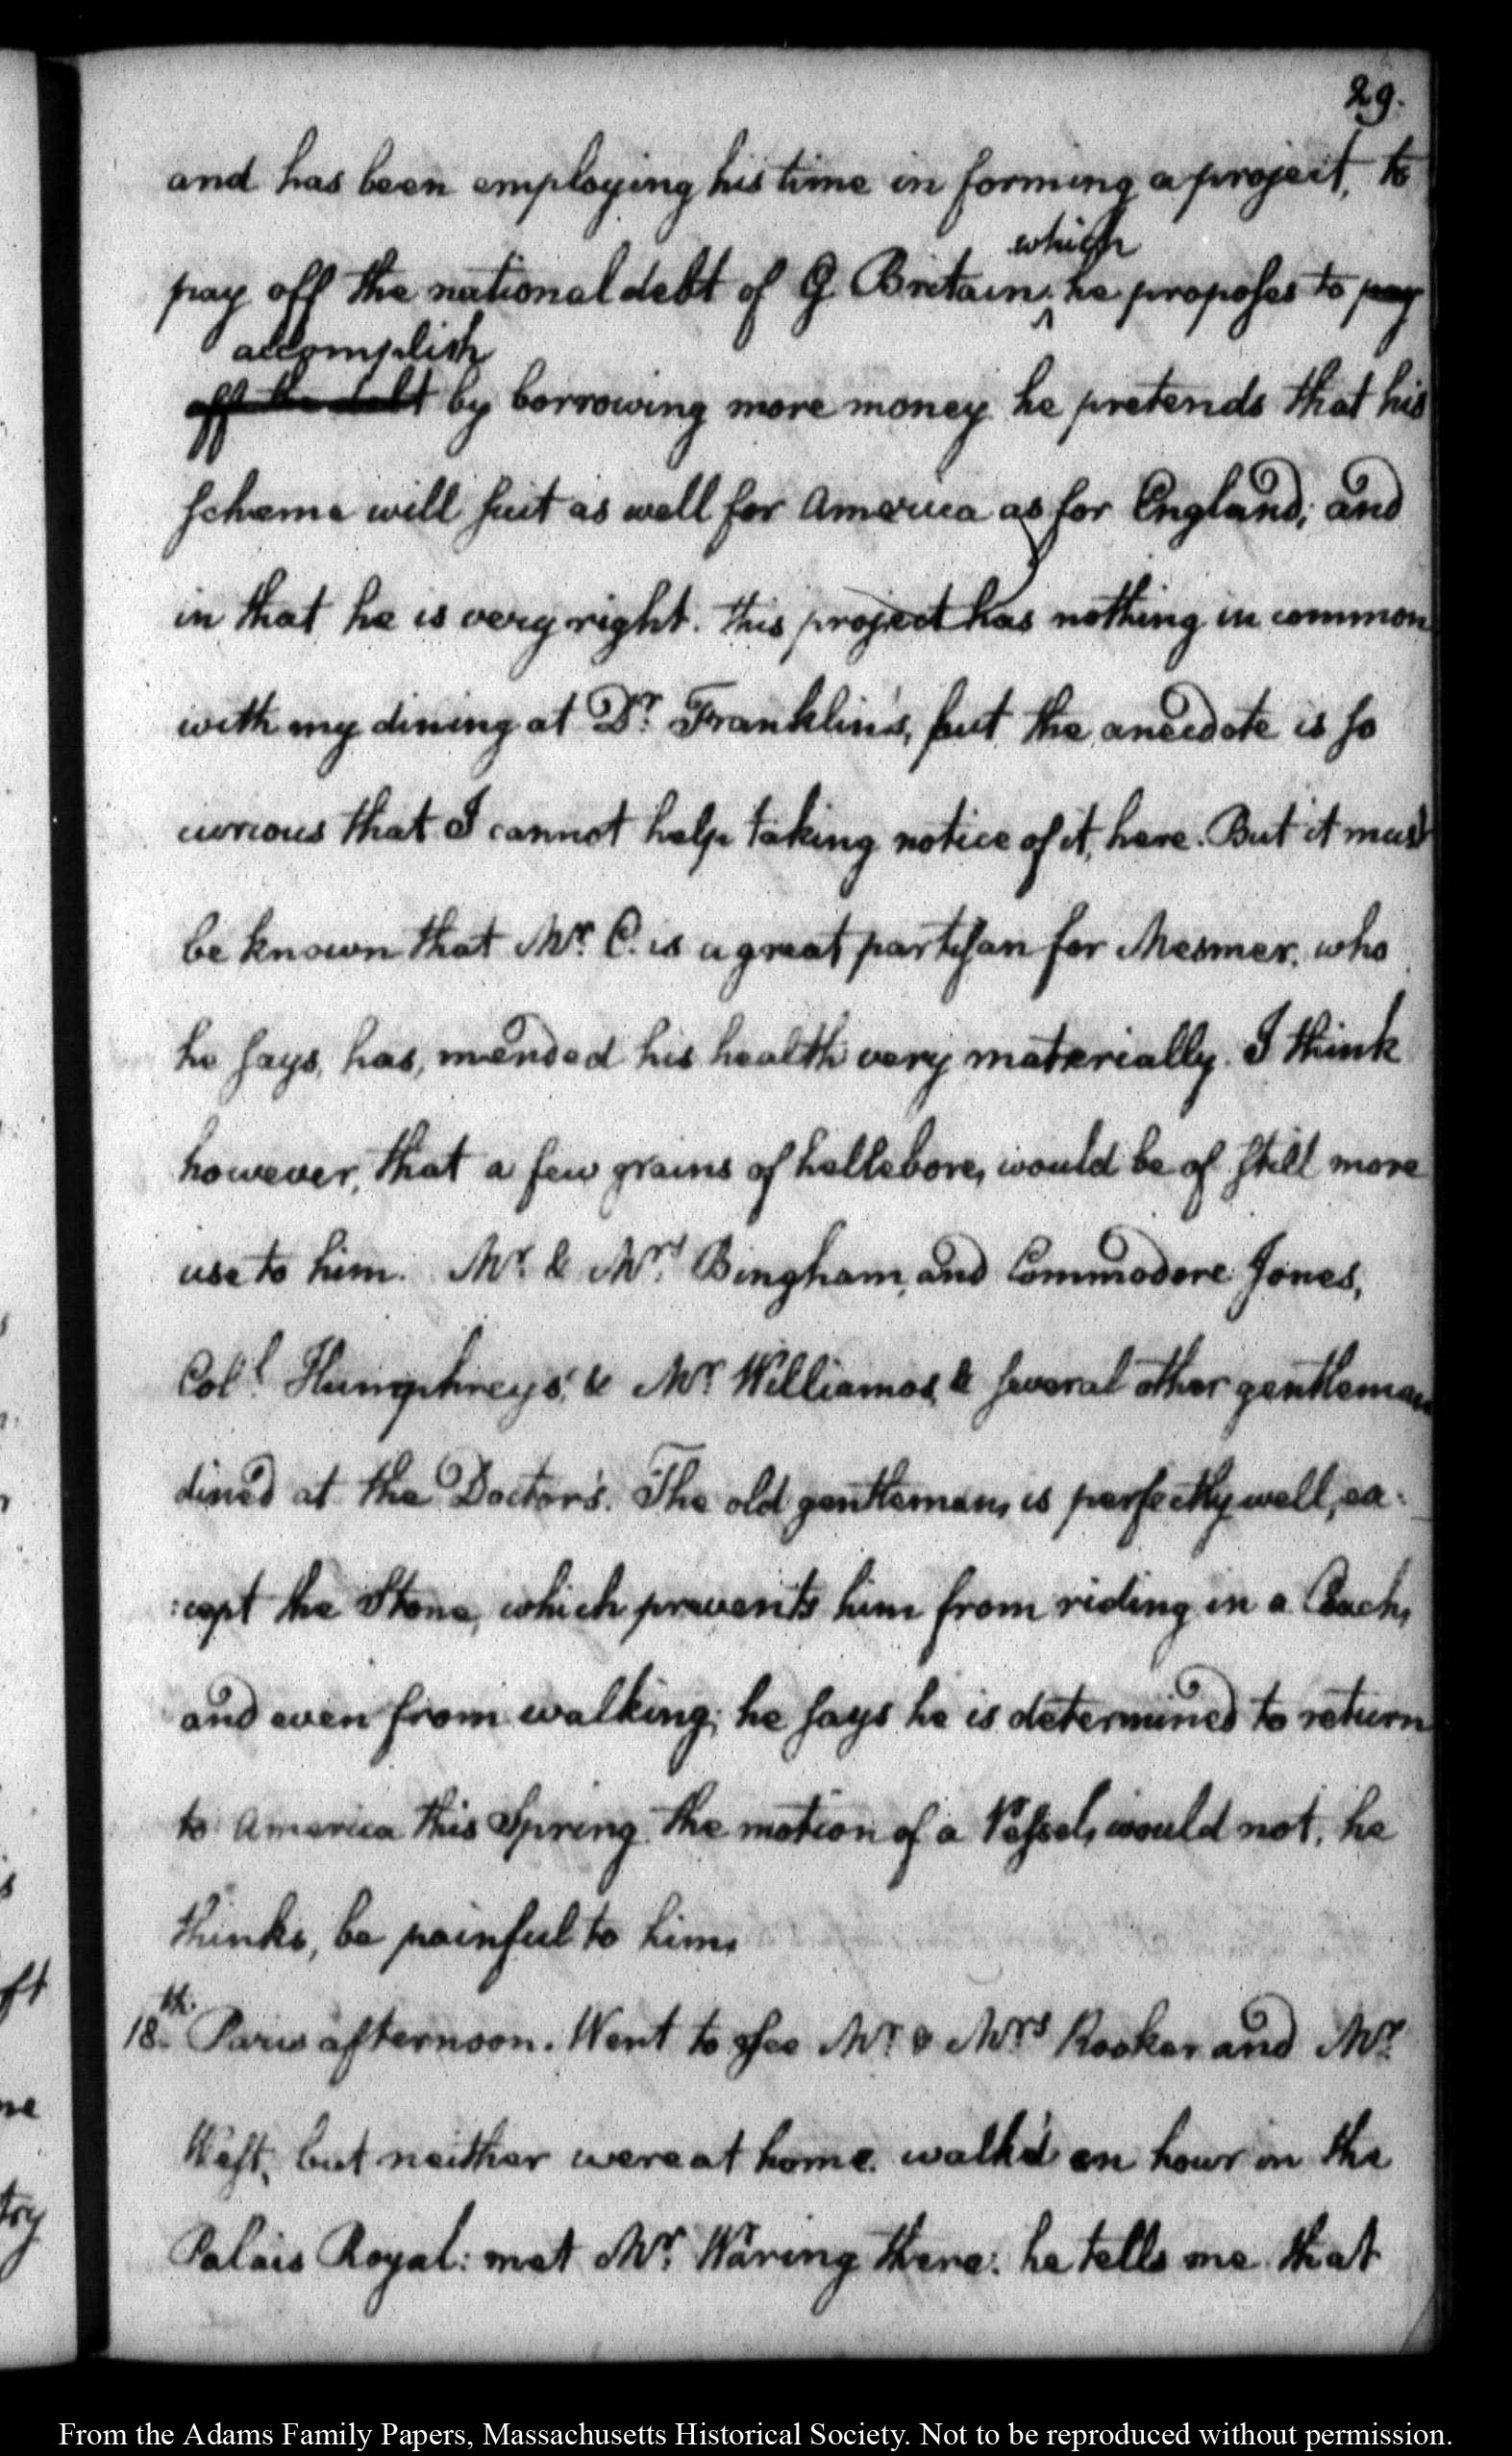 29.
and has been employing his time in forming a project, to
which
pay off the national debt of G. Britain. he proposes to pay
accomplish
off the debt by borrowing more money he pretends that his
scheme will suit as well for America as for England; and
in that he is very right. this project has nothing in common
with my dining at Dr. Franklin's, but the anecdote is so
curious that I cannot help taking notice of it, here. But it must
be known that Mr. C. is a great partisan for Mesmer, who
he says, has, mended his health very materially. I think
however, that a few grains of hellebore, would be of still more
use to him. Mr. & Mrs. Bingham, and Commodore Jones,
Coll. Humphreys, & Mr. Williamos, & several other gentlemen
dined at the Doctor's. The old gentleman, is perfectly well, ex-
:cept the Stone, which prevents him from riding in a Coach,
and even from walking; he says he is determined to return
to America this Spring. the motion of a Vessel, would not, he
thinks, be painful to him.
18th. Paris afternoon. Went to see Mr. & Mrs. Rooker and Mr.
West, but neither were at home. walk'd an hour in the
Palais Royal: met Mr. Waring there: he tells me that
From the Adams Family Papers, Massachusetts Historical Society. Not to be reproduced without permission.